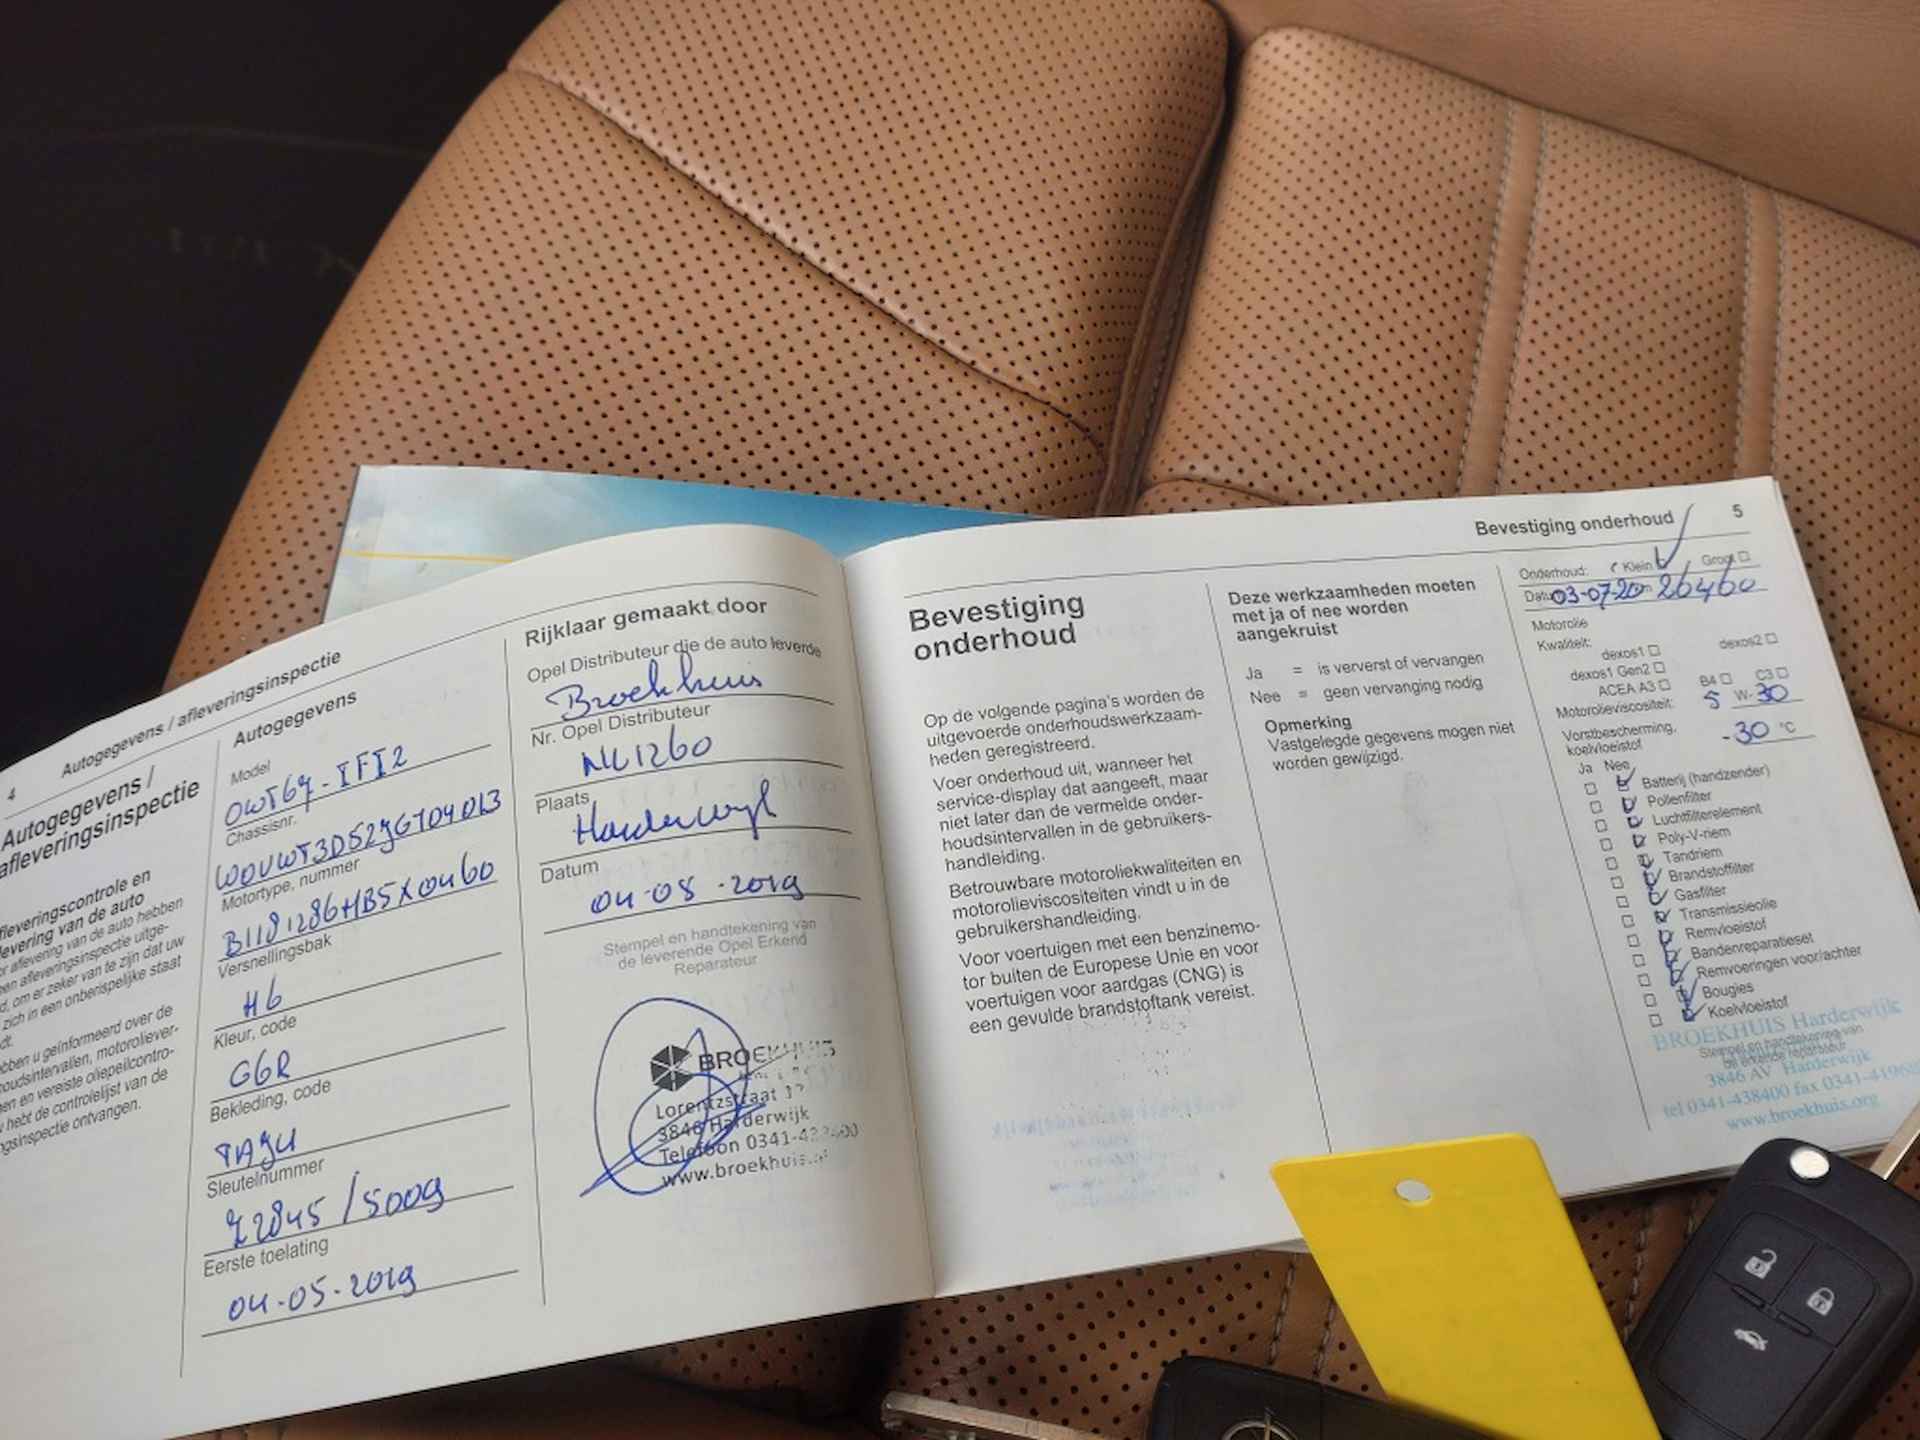 4
Autogegevens / afleveringsinspectie
Autogegevens /
afleveringsinspectie
afleveringscontrole en
aflevering van de auto
aflevering van de auto hebben
een afleveringsinspectie uitge-
om er zeker van te zijn dat uw
zich in een onberispelijke staat
hebben u geïnformeerd over de
en vereiste oliepeilcontro-
hebt de controlelijst van de
ontvangen.
Autogegevens
Model
0WT67-IFI2
Chassisnr.
Motortype, nummer
Versnellingsbak
H6
Kleur, code
G6R
Bekleding, code
TAJU
Sleutelnummer
Z2845 / 5009
Eerste toelating
04-05-2019
Rijklaar gemaakt door
Opel Distributeur die de auto leverde
Broekhuis
Nr. Opel Distributeur
NL1260
Plaats
Harderwijk
Datum
04-05-2019
Stempel en handtekening van
de leverende Opel Erkend
Reparateur
BROEKHUIS
Lorentzstraat
3846 Harderwijk
Telefoon 0341-
www.broekhuis.nl
Bevestiging onderhoud 5
Bevestiging
onderhoud
Op de volgende pagina's worden de
uitgevoerde onderhoudswerkzaam-
heden geregistreerd.
Voer onderhoud uit, wanneer het
service-display dat aangeeft, maar
niet later dan de vermelde onder-
houdsintervallen in de gebruikers-
handleiding.
Betrouwbare motoroliekwaliteiten en
motorolieviscositeiten vindt u in de
gebruikershandleiding.
Voor voertuigen met een benzinemo-
tor buiten de Europese Unie en voor
voertuigen voor aardgas (CNG) is
een gevulde brandstoftank vereist.
Deze werkzaamheden moeten
met ja of nee worden
aangekruist
Ja = is ververst of vervangen
Nee = geen vervanging nodig
Opmerking
Vastgelegde gegevens mogen niet
worden gewijzigd.
Onderhoud: Klein Groot
Datum 03-07-20 26460
Motorolie
Kwaliteit:
dexos1 dexos2
dexos1 Gen2
ACEA A3 B4 C3
Motorolieviscositeit: 5 W- 30
Vorstbescherming,
koelvloeistof -30 °C
Ja Nee
Batterij (handzender)
Pollenfilter
Luchtfilterelement
Poly-V-riem
Tandriem
Brandstoffilter
Gasfilter
Transmissieolie
Remvloeistof
Bandenreparatieset
Remvoeringen voor/achter
Bougies
Koelvloeistof
BROEKHUIS Harderwijk
Stempel en handtekening van
de erkende reparateur
3846 AV Harderwijk
tel 0341-438400 fax 0341-
www.broekhuis.org